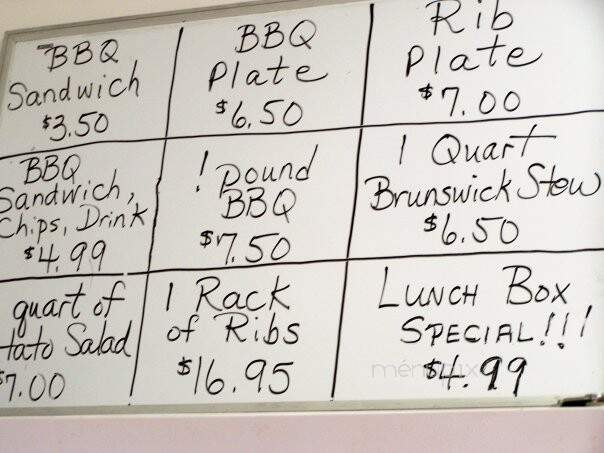 BBQ
Sandwich
$3.50
BBQ
Plate
$6.50
Rib
Plate
$7.00
BBQ
Sandwich,
Chips, Drink
$4.99
1 Pound
BBQ
$7.50
1 Quart
Brunswick Stew
$6.50
quart of
tato Salad
$7.00
1 Rack
of Ribs
$16.95
LUNCH BOX
SPECIAL!!!
$4.99